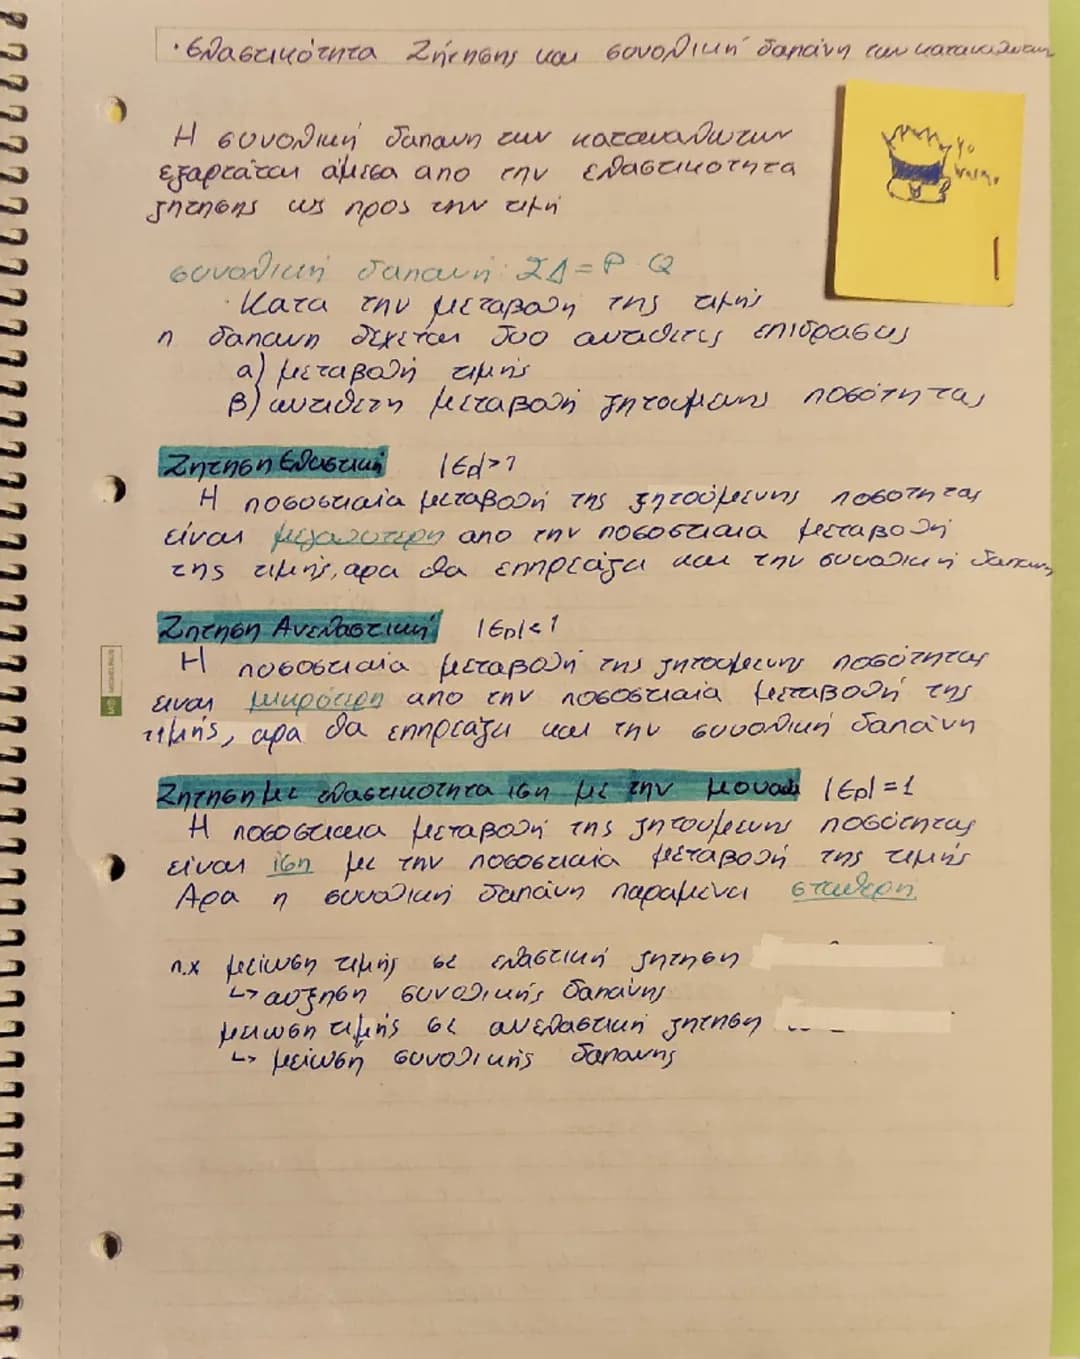 · Ελαστικότητα Ζήτησης και συνολική δαπάνη των καταναλωτων
Η συνολική δαπανη των καταναλωτων
εξαρτάται άμεσα απο την ελαστικοτητα
ζητησης ως προς την τιμή
Yo
συνολική δαπανη: ΣΔ = P · Q
· Κατα την μεταβολη της τιμής
η δαπανη δεχεται δυο αντιθετες επιδρασεις
α) μεταβολή τιμής
β) αντιθετη μεταβολη ζητουμενης ποσότητας
Ζητηση Ελαστική |Ed|>1
Η ποσοστιαία μεταβολή της ζητούμενης ποσοτητας
είναι μεγαλυτερη απο την ποσοστιαια μεταβολή
της τιμής, αρα θα επηρεάζει και την συνολική δαπανη
Ζητηση Ανελαστική |ED|<1
Η ποσοστιαια μεταβολή της ζητουμενης ποσότητας
ειναι μικρότερη απο την ποσοστιαία μεταβολή της
τιμής, αρα θα επηρεάζει και την συνολική δαπάνη
Ζητηση με ελαστικοτητα ιση με την μοναδα |ED|=1
Η ποσοστιαια μεταβολή της ζητουμενης ποσότητας
είναι ίση με την ποσοστιαία μεταβολή της τιμής
Αρα η συνολική δαπάνη παραμένει σταθερή
π.χ μείωση τιμής σε ελαστική ζητηση
↳ αυξηση συνολικής δαπάνης
μειωση τιμής σε ανελαστική ζητηση
↳ μείωση συνολικής δαπανης